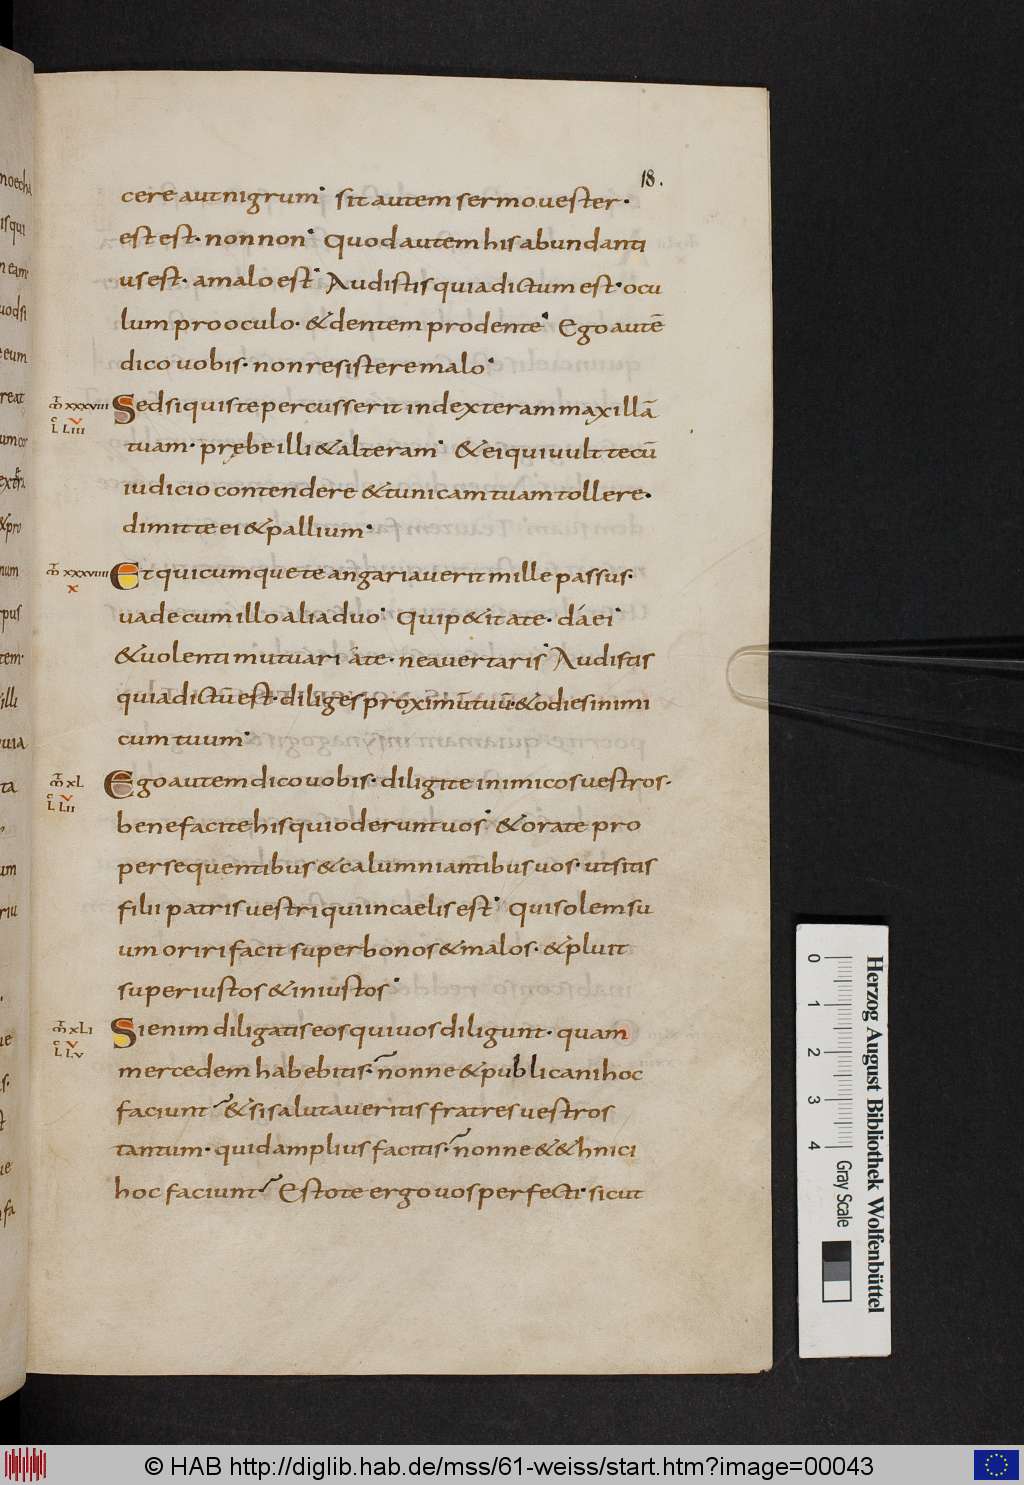 18.
cere aut nigrum· sit autem sermo uester·
est est· non non· Quod autem his abundanti
us est· a malo est· Audistis quia dictum est· ocu
lum pro oculo· & dentem pro dente· Ego autē
dico uobis· non resistere malo·
m̄ xxxviii
L Liii
v
Sed si quis te percusserit in dexteram maxillā
tuam· prębe illi & alteram· & ei qui uult tecū
iudicio contendere & tunicam tuam tollere·
dimitte ei & pallium·
m̄ xxxviiii
x
Et quicumque te angariauerit mille passus·
uade cum illo alia duo· Qui p&it a te· dá ei·
& uolenti mutuari a te· ne auertaris· Audistis
quia dictū est· diliges proximū tuū· & odies inimi
cum tuum·
m̄ xL
L Lii
v
Ego autem dico uobis· diligite inimicos uestros·
benefacite his qui oderunt uos· & orate pro
persequentibus & calumniantibus uos· ut sitis
filii patris uestri qui in caelis est· Qui solem su
um oriri facit super bonos & malos· & pluit
super iustos & iniustos·
m̄ xLi
L Lv
v
Si enim diligatis eos qui uos diligunt· quam
mercedem habebitis· nonne & publicani hoc
faciunt & si salutaueritis fratres uestros
tantum· quid amplius facitis· nonne & &hnici
hoc faciunt Estote ergo uos perfecti· sicut
Herzog August Bibliothek Wolfenbüttel
0 1 2 3 4 Gray Scale
© HAB http://diglib.hab.de/mss/61-weiss/start.htm?image=00043